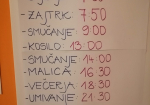 - ZAJTRK 7.50
- SMUČANJE 9.00
- KOSILO 13.00
- SMUČANJE 14.00
- MALICA 16.30
- VEČERJA 18.30
- UMIVANJE 21.30